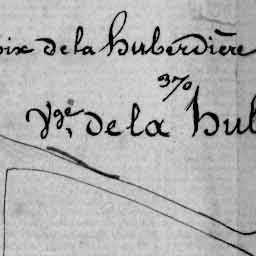 oix de la huberdière
370
Vge. de la hub